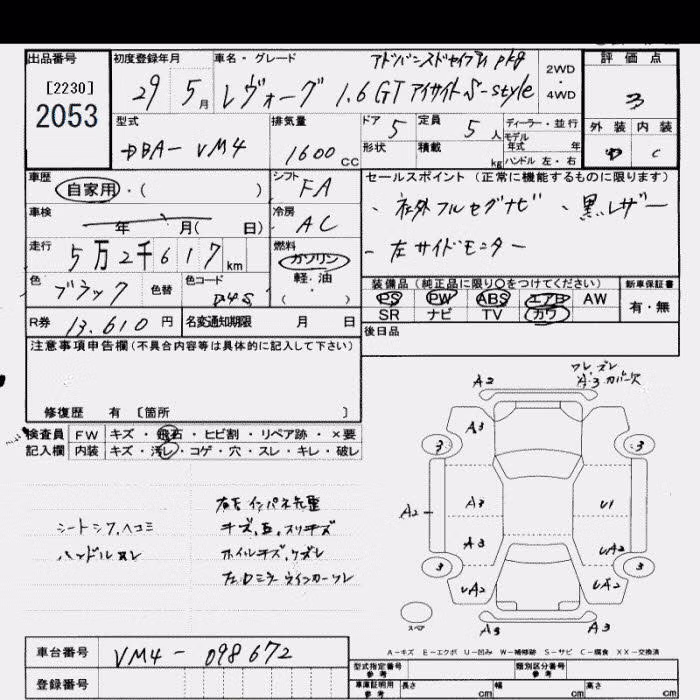 出品番号
[2230]
2053
初度登録年月
29 5月
車名・グレード
アドバンスドセイフティpkg
レヴォーグ 1.6GT アイサイト S-style
2WD
・
4WD
評価点
3
外装 内装
D C
型式
DBA-VM4
排気量
1600cc
ドア
5
定員
5人
形状
積載
kg
ディーラー・並行
モデル
年式 年
ハンドル 左・右
車歴
自家用・( )
シフト
FA
車検
年 月( 日)
冷房
AC
走行
5万2千617km
燃料
ガソリン
軽・油
・
( )
色
ブラック
色替
色コード
D4S
R券 13,610円
名変通知期限 月 日
セールスポイント (正常に機能するものに限ります)
、社外フルセグナビ 、黒レザー
、左サイドモニター
装備品(純正品に限り〇をつけてください)
PS PW ABS エアB AW
SR ナビ TV カワ
新車保証書
有・無
後日品
注意事項申告欄(不具合内容等は具体的に記入して下さい)
修復歴 有 [箇所 ]
検査員
記入欄
FW キズ・飛石・ヒビ割・リペア跡・×要
内装 キズ・汚レ・コゲ・穴・スレ・キレ・破レ
シートシワ、ヘコミ
ハンドルスレ
キズ、スリキズ
ホイルキズ、ケズレ
左ドミラーウインカーワレ
A2
ワレ、ズレ
A3 カバー欠
A3
3 3
A2
A3
U1
A3
UA2
3 3
UA2
UA2
スペア
A3
A3
A-キズ E-エクボ U-凹み W-補修跡 S-サビ C-腐食 XX-交換済
車台番号 VM4-098672
登録番号
型式指定番号
参考
類別区分番号
参考
車庫証明用
参考
長さ cm
幅 cm
高さ cm